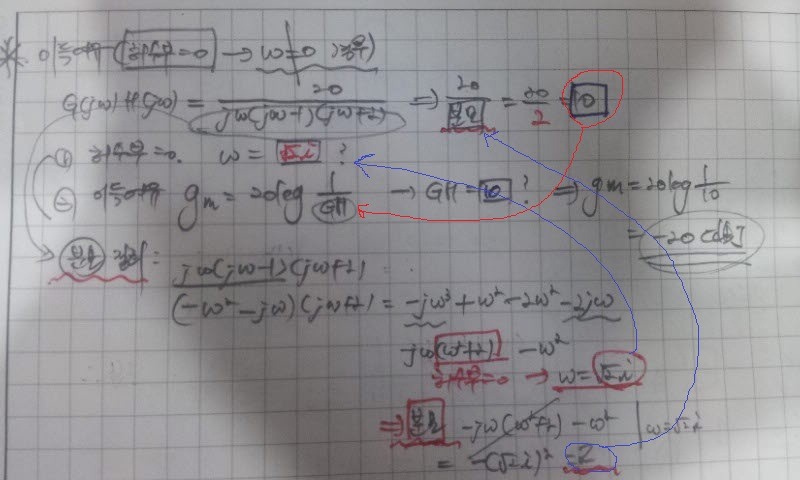 * 이득여유 (허수부=0) → ω=0 경우)
G(jω)H(jω) = 20 / jω(jω-1)(jω+2) ⇒ 20 / 분모 = 20/2 = 10
① 허수부=0. ω = √2i ?
② 이득여유 gm = 20log 1/GH → GH = 10 ? ⇒ gm = 20log 1/10
= -20[dB]
분모 정리 : jω(jω-1)(jω+2)
(-ω²-jω)(jω+2) = -jω³+ω²-2ω²-2jω
-jω(ω²+2) -ω²
허수부=0 → ω=√2i
⇒ 분모 -jω(ω²+2) -ω² | ω=√2i
= -(√2i)² = 2